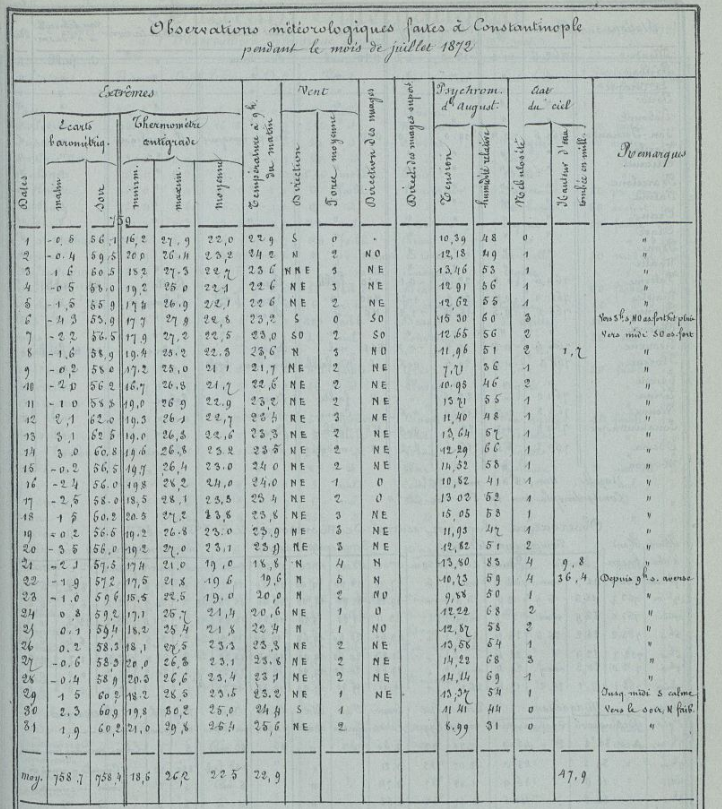 Observations météorologiques faites à Constantinople
pendant le mois de juillet 1872
Extrêmes Vent Psychrom. d'August. état du ciel
Écarts barométriq. Thermomètre centigrade
Dates matin soir minim. maxim. moyenne Température à 9h. du matin Direction Force moyenne Direction des nuages Direct. des nuages supér. Tension humidité relative Nébulosité Hauteur d'eau tombée en mill. Remarques
759
1 -0,5 56,1 16,2 27,9 22,0 22,9 S 0 - 10,39 48 0 "
2 -0,4 59,5 20,0 26,4 23,2 24,2 N 2 NO 12,18 49 1 "
3 1,6 60,5 18,2 27,3 22,7 23,6 NNE 3 NE 13,46 53 1 "
4 -0,5 58,0 19,2 25,0 22,1 22,6 NE 3 NE 12,91 56 1 "
5 -1,5 55,9 17,4 26,9 22,1 22,6 NE 2 NE 12,62 55 1 "
6 -4,3 53,9 17,7 27,9 22,8 23,2 S 0 SO 15,30 60 3 Vers 5h s, NO as. fort et pluie
7 -2,2 56,5 17,9 27,2 22,5 23,0 SO 2 SO 12,65 56 2 Vers midi SO as. fort
8 -1,6 58,9 19,4 25,2 22,3 23,6 N 3 NO 11,96 51 2 1,7 "
9 -0,2 58,0 17,2 25,0 21,1 21,7 NE 2 NE 7,71 36 1 "
10 -2,0 56,2 16,7 26,8 21,7 22,6 NE 2 NE 10,93 46 2 "
11 -1,0 58,8 19,0 26,9 22,9 23,2 NE 2 NE 13,71 55 1 "
12 2,1 62,0 19,3 26,1 22,7 22,4 NE 3 NE 11,40 48 1 "
13 3,1 62,5 19,0 26,3 22,6 23,3 NE 2 NE 13,64 57 1 "
14 3,0 60,8 19,6 26,8 23,2 23,5 NE 2 NE 12,29 66 1 "
15 -0,2 56,5 19,7 26,4 23,0 24,0 NE 2 NE 14,52 58 1 "
16 -2,4 56,0 19,8 28,2 24,0 24,0 NE 1 O 10,82 41 1 "
17 -2,5 58,0 18,5 28,1 23,3 23,4 NE 2 O 13,02 52 1 "
18 1,5 60,2 20,5 27,2 23,8 23,8 NE 3 NE 15,05 53 1 "
19 -0,2 56,5 19,2 26,8 23,0 23,9 NE 3 NE 11,93 47 1 "
20 -3,5 56,0 19,2 27,0 23,1 23,9 NE 3 NE 12,82 51 2 "
21 -2,1 57,5 17,4 21,0 19,0 18,8 N 4 N 13,80 83 4 9,8 "
22 -1,9 57,2 17,5 21,8 19,6 19,6 N 5 N 10,73 59 4 36,4 Depuis 9h s. averse
23 -1,0 59,6 15,5 22,5 19,0 20,0 N 2 NO 9,88 50 1 "
24 0,8 59,2 17,1 25,7 21,4 20,6 NE 1 O 12,22 68 2 "
25 0,1 59,4 18,2 25,4 21,8 22,4 N 1 NO 12,87 58 2 "
26 0,2 58,3 18,1 27,5 23,3 23,3 NE 2 NE 13,58 54 1 "
27 -0,6 58,3 20,0 26,3 23,1 23,8 NE 2 NE 14,22 68 3 "
28 -0,4 58,9 20,3 26,6 23,4 23,1 NE 2 NE 14,14 69 1 "
29 1,5 60,2 18,2 28,5 23,5 23,2 NE 1 NE 13,37 54 1 Jusq. midi S calme
30 2,3 60,9 19,8 30,2 25,0 24,4 S 1 11,41 44 0 Vers le soir, N faib.
31 1,9 60,2 21,0 29,8 25,4 25,6 NE 2 8,99 31 0 "
moy. 758,7 758,4 18,6 26,2 22,5 22,9 47,9